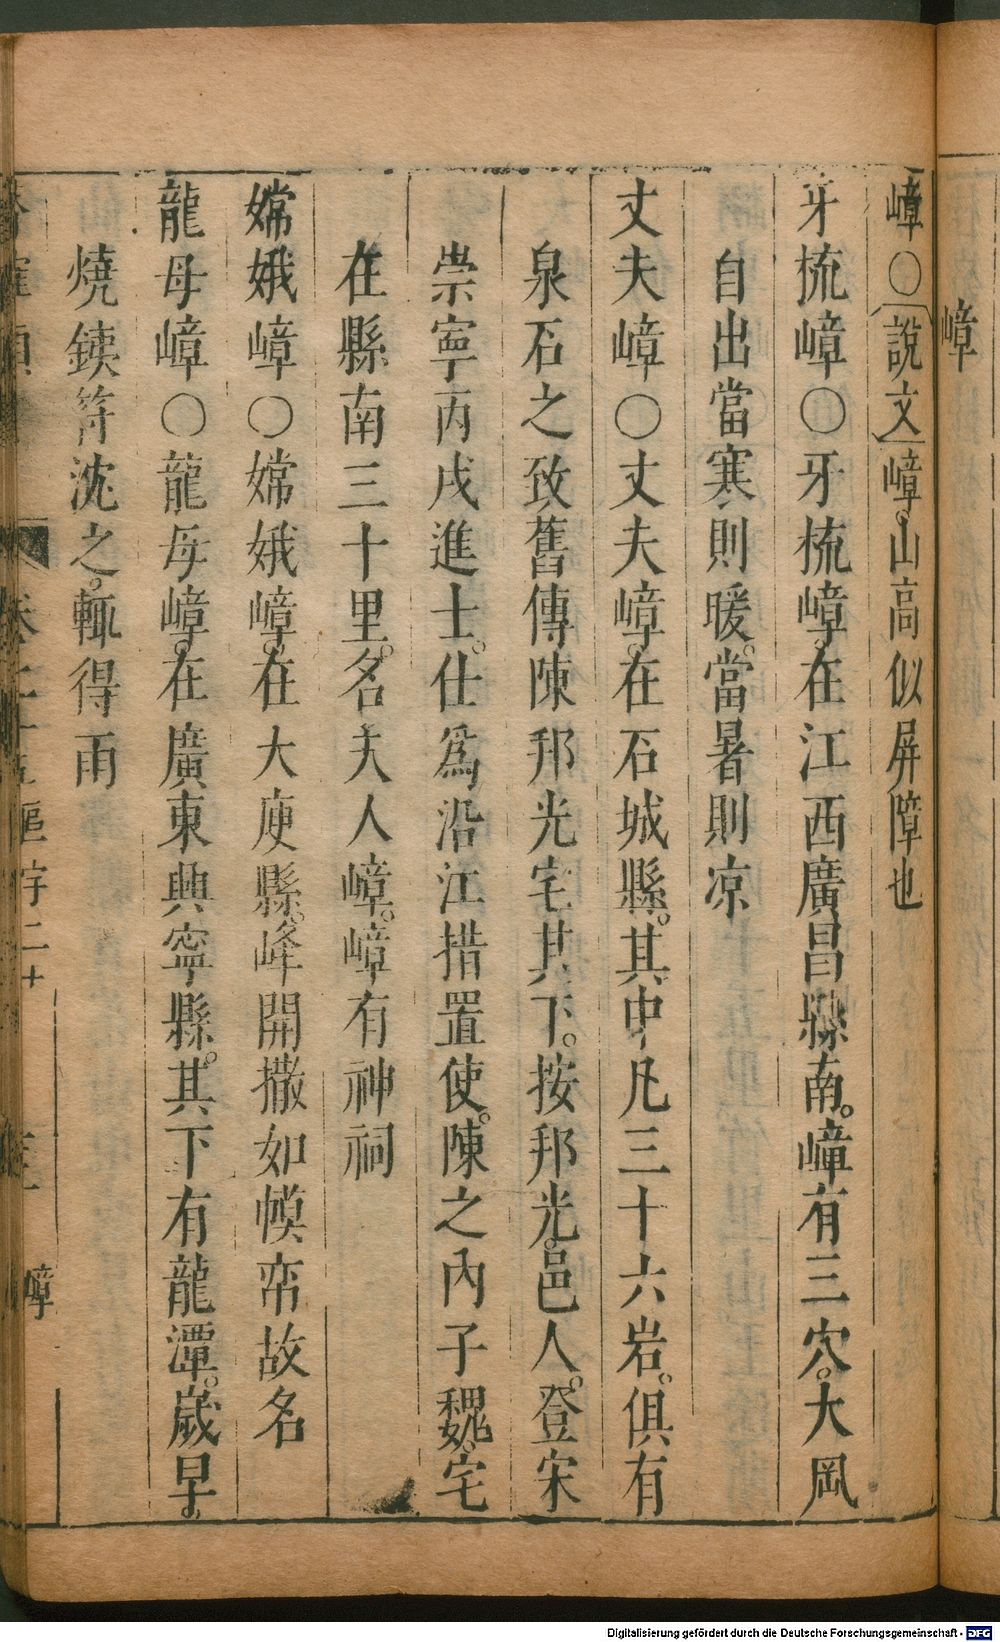 嶂
嶂○說文嶂。山高似屏障也
牙梳嶂○牙梳嶂。在江西廣昌縣南。嶂有三穴。大風
自出當寒則暖。當暑則凉
丈夫嶂○丈夫嶂。在石城縣。其中凡三十六岩。俱有
泉石之致舊傳陳邦光宅其下。按邦光。邑人。登宋
崇寧丙戌進士。仕爲沿江措置使。陳之內子魏。宅
在縣南三十里。名夫人嶂。嶂有神祠
嫦娥嶂○嫦娥嶂。在大庾縣。峰開撒如幙帟故名
龍母嶂○龍母嶂。在廣東興寧縣。其下有龍潭。歲旱。
燒鐵符沈之。輒得雨
卷二十五區字二十
嶂
Digitalisierung gefördert durch die Deutsche Forschungsgemeinschaft - DFG